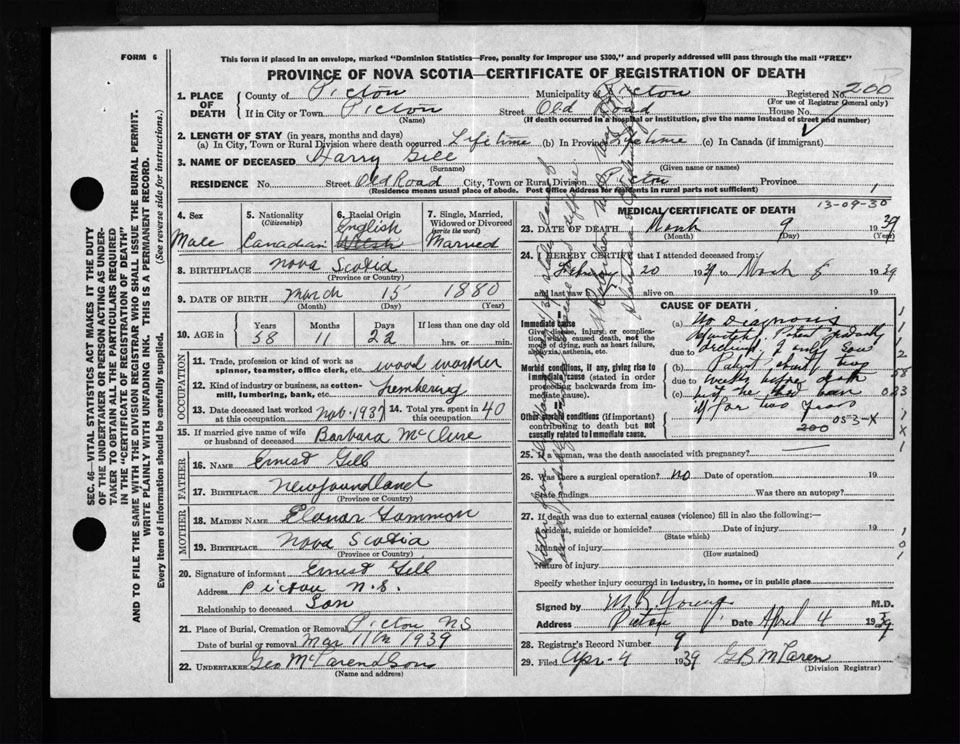 FORM 6
This form if placed in an envelope, marked "Dominion Statistics—Free, penalty for improper use $300," and properly addressed will pass through the mail "FREE"
PROVINCE OF NOVA SCOTIA—CERTIFICATE OF REGISTRATION OF DEATH
Registered No. 200
(For use of Registrar General only)
1. PLACE OF DEATH
County of Pictou Municipality of Pictou
If in City or Town Pictou Street Old Road House No.
(Name) (If death occurred in a hospital or institution, give the name instead of street and number)
2. LENGTH OF STAY (in years, months and days)
(a) In City, Town or Rural Division where death occurred Lifetime (b) In Province Lifetime (c) In Canada (if immigrant)
3. NAME OF DECEASED Harry Gill
(Surname) (Given name or names)
RESIDENCE No. Street Old Road City, Town or Rural Division Pictou Province
(Residence means usual place of abode. Post Office Address for residents in rural parts not sufficient)
4. Sex Male
5. Nationality (Citizenship) Canadian
6. Racial Origin English Welsh
7. Single, Married, Widowed or Divorced (write the word) Married
8. BIRTHPLACE Nova Scotia
(Province or Country)
9. DATE OF BIRTH March 15 1880
(Month) (Day) (Year)
10. AGE in Years Months Days If less than one day old
58 11 22 hrs. or min.
OCCUPATION
11. Trade, profession or kind of work as spinner, teamster, office clerk, etc. wood worker
12. Kind of industry or business, as cotton-mill, lumbering, bank, etc. Lumbering
13. Date deceased last worked at this occupation Nov. 1937 14. Total yrs. spent in this occupation 40
15. If married give name of wife or husband of deceased Barbara McClure
FATHER
16. NAME Ernest Gill
17. BIRTHPLACE Newfoundland
(Province or Country)
MOTHER
18. MAIDEN NAME Elanor Sammon
19. BIRTHPLACE Nova Scotia
(Province or Country)
20. Signature of informant Ernest Gill
Address Pictou N.S.
Relationship to deceased Son
21. Place of Burial, Cremation or Removal Pictou NS
Date of burial or removal Mar 11th 1939
22. UNDERTAKER Geo McLaren & Sons
(Name and address)
MEDICAL CERTIFICATE OF DEATH
13-09-30
23. DATE OF DEATH March 9 1939
(Month) (Day) (Year)
24. I HEREBY CERTIFY that I attended deceased from:
February 20 1939 to March 8 1939
and last saw alive on 19
CAUSE OF DEATH
Immediate cause
Give disease, injury, or complication, which caused death, not the mode of dying, such as heart failure, asphyxia, asthenia, etc.
Morbid conditions, if any, giving rise to immediate cause (stated in order proceeding backwards from immediate cause).
Other morbid conditions (if important) contributing to death but not causally related to immediate cause.
(a) No Diagnosis
due to
(b) Patient about two
due to weeks before death
but he had been
for two years
200
25. If a woman, was the death associated with pregnancy?
26. Was there a surgical operation? no Date of operation 19
State findings Was there an autopsy?
27. If death was due to external causes (violence) fill in also the following:—
Accident, suicide or homicide? Date of injury 19
(State which)
Manner of injury
(How sustained)
Nature of injury
Specify whether injury occurred in industry, in home, or in public place
Signed by M.R. Young M.D.
Address Pictou Date April 4 1939
28. Registrar's Record Number 9
29. Filed Apr-4 1939 G B McLaren
(Division Registrar)
SEC. 46—VITAL STATISTICS ACT MAKES IT THE DUTY OF THE UNDERTAKER OR PERSON ACTING AS UNDERTAKER TO OBTAIN ALL THE PARTICULARS REQUIRED IN THE "CERTIFICATE OF REGISTRATION OF DEATH"
AND TO FILE THE SAME WITH THE DIVISION REGISTRAR WHO SHALL ISSUE THE BURIAL PERMIT.
WRITE PLAINLY WITH UNFADING INK. THIS IS A PERMANENT RECORD.
Every item of information should be carefully supplied. (See reverse side for instructions.)